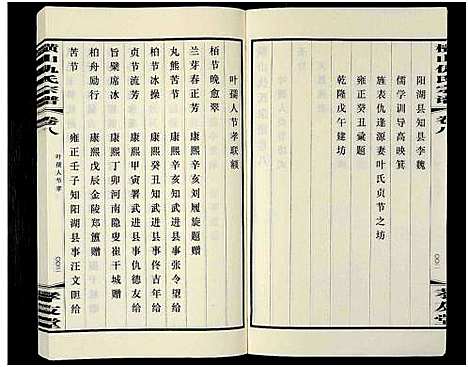 横山仇氏宗谱 卷八
阳湖县知县李魏
儒学训导高映箕
旌表仇逢源妻叶氏贞节之坊
雍正癸丑彙题
乾隆戊午建坊
孝友堂
叶孺人节孝联额
栢节晚愈翠
兰芽春正芳 康熙辛亥刘履旋题赠
丸熊苦节 康熙辛亥知武进县事张令望给
柏节冰操 康熙癸丑知武进县事佟吉年给
贞节流芳 康熙甲寅署武进县事仇德友给
旨檗席冰 康熙丁卯河南隐叟崔干城赠
柏舟励行 康熙戊辰金陵郑簠赠
苦节 雍正壬子知阳湖县事汪文䏲给
横山仇氏宗谱 卷八
叶孺人节孝
孝友堂